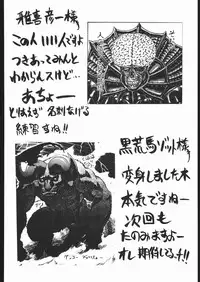 雅喜彦一様
このん1111人ですよ
つきあってみんと
わからんスけど…
あちょー
とりあえず名刺なげる
練習すね!!
黒荒馬ゾット様
変身しましたネ
本気ですねー
次回も
たのみまちょー
オレ期待してるっチ!!